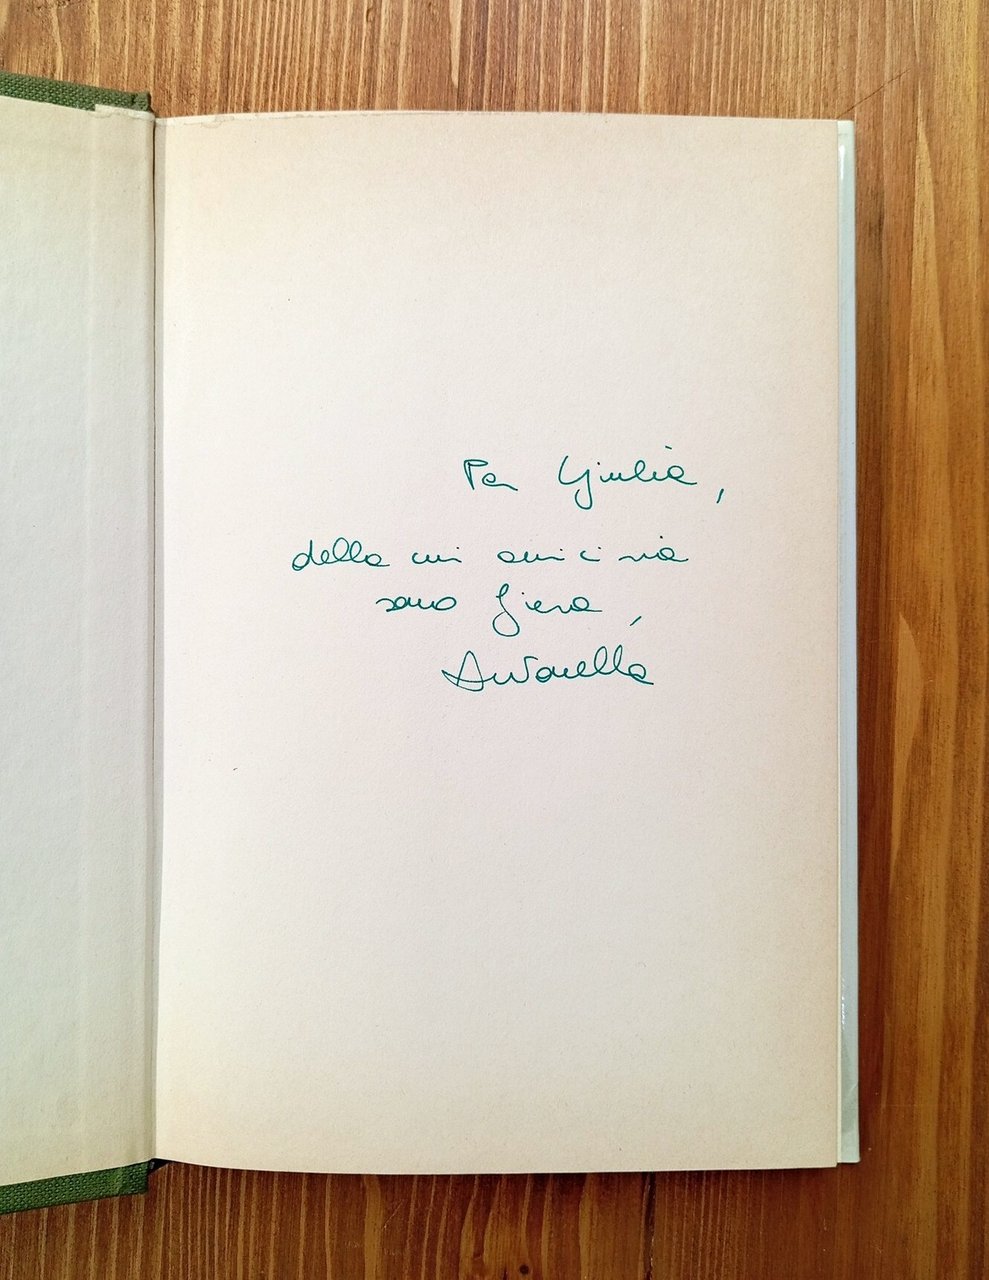 Per Giulia,
della cui amicizia
sono fiera,
Antonella